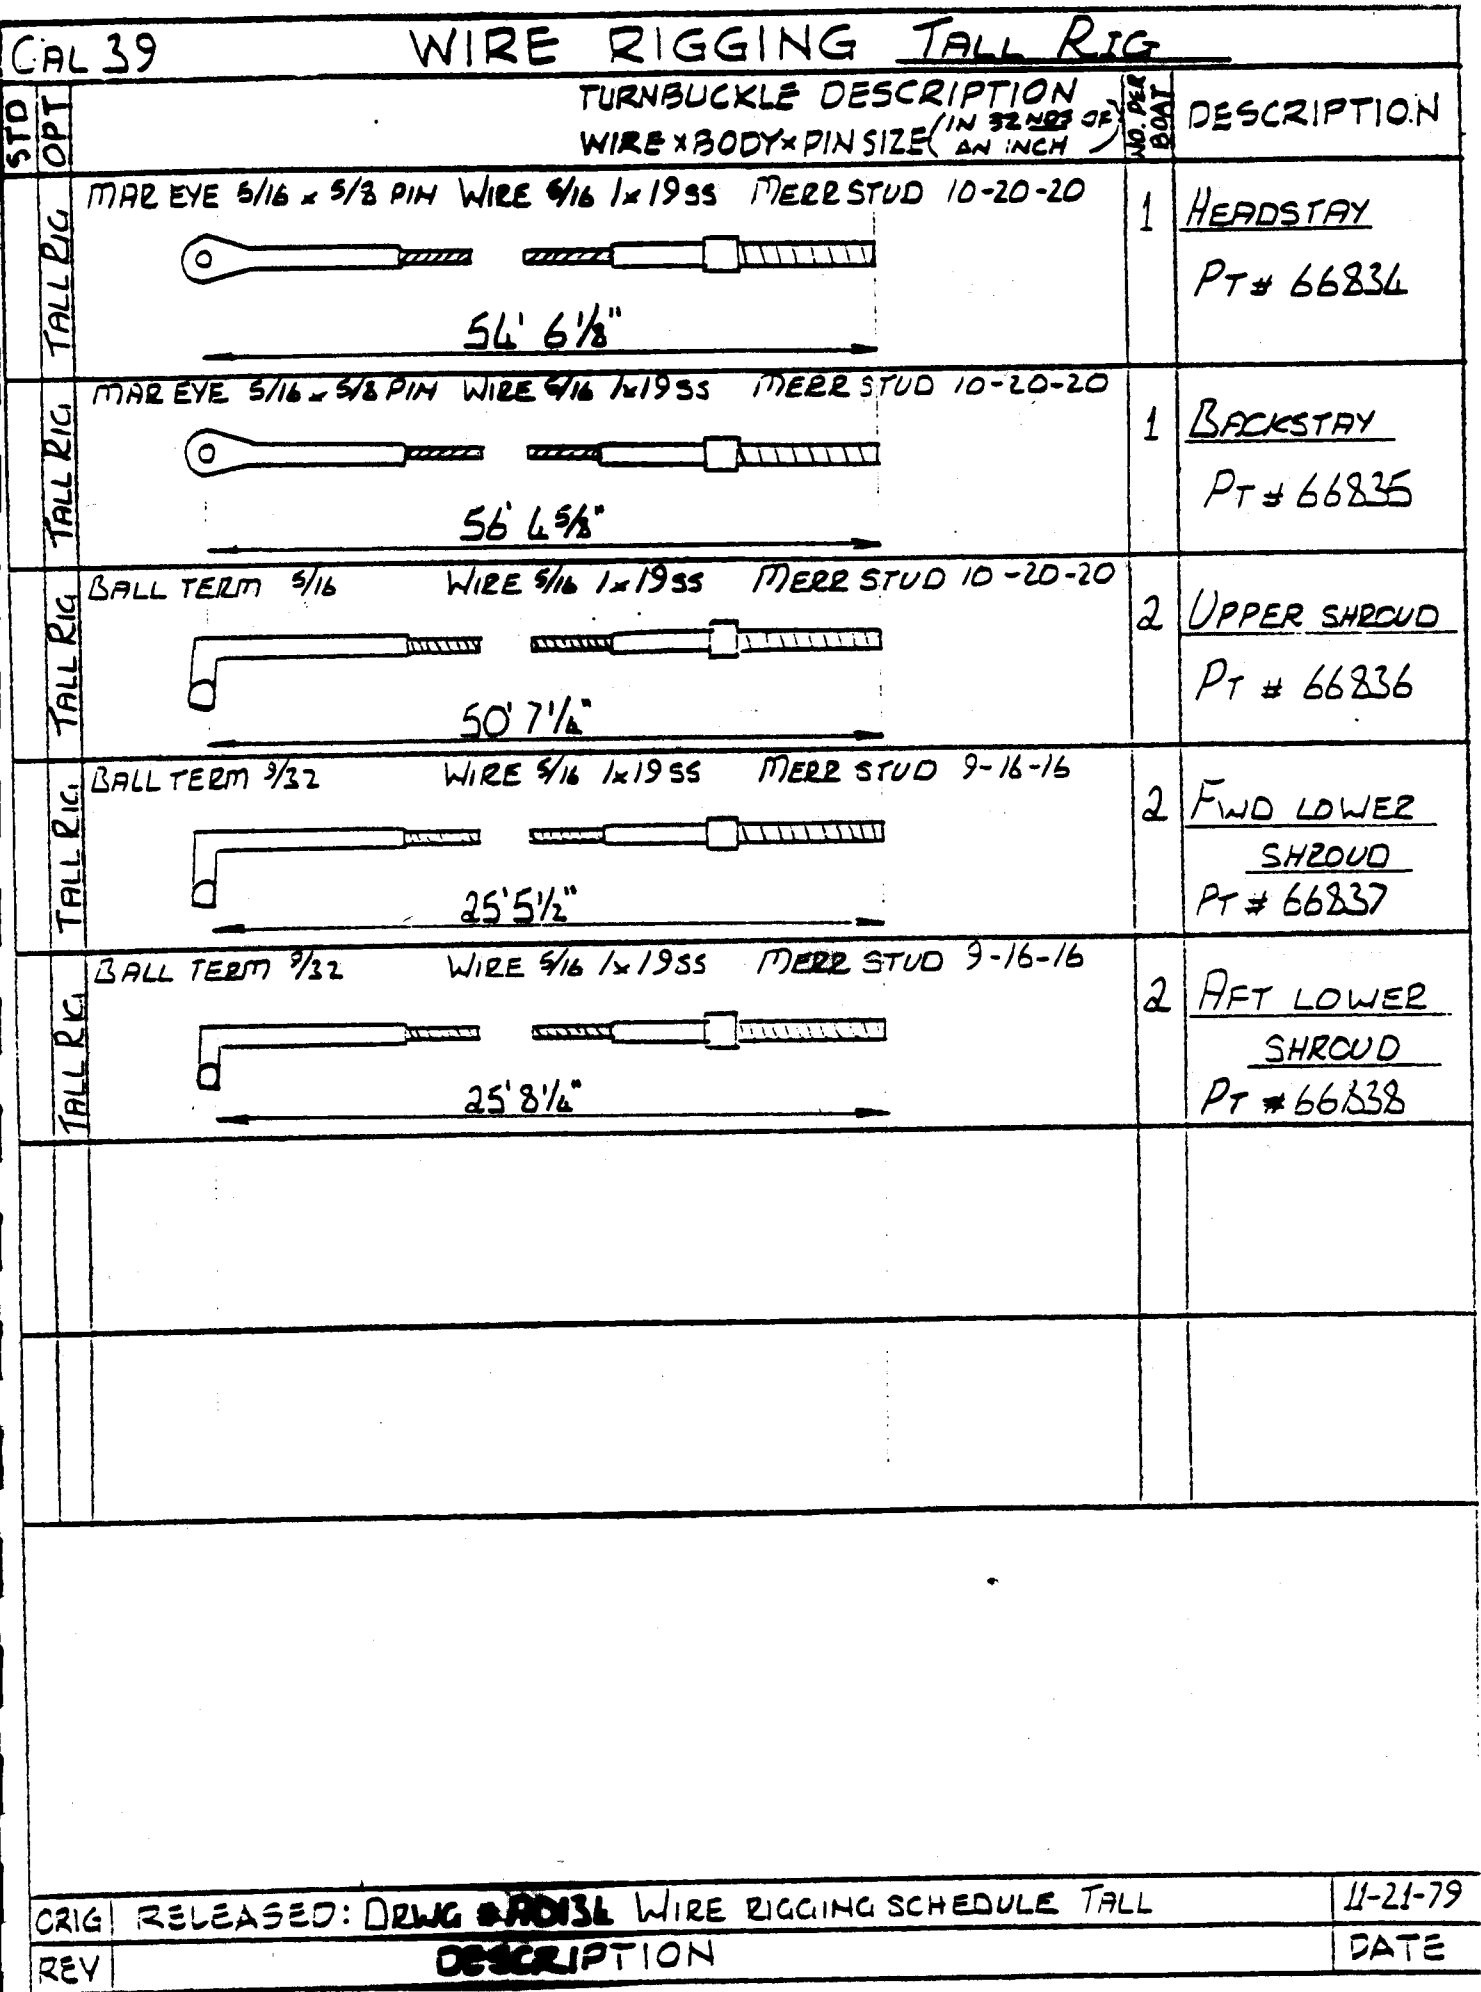 CAL 39 WIRE RIGGING TALL RIG
STD
OPT
TURNBUCKLE DESCRIPTION
WIRE x BODY x PIN SIZE (IN 32NDS OF AN INCH)
NO. PER BOAT
DESCRIPTION
TALL RIG
MAR EYE 5/16 x 5/8 PIN WIRE 5/16 1x19 SS MERR STUD 10-20-20
54' 6 1/8"
1
HEADSTAY
PT # 66834
TALL RIG
MAR EYE 5/16 x 5/8 PIN WIRE 5/16 1x19 SS MERR STUD 10-20-20
56' 4 5/8"
1
BACKSTAY
PT # 66835
TALL RIG
BALL TERM 5/16 WIRE 5/16 1x19 SS MERR STUD 10-20-20
50' 7 1/4"
2
UPPER SHROUD
PT # 66836
TALL RIG
BALL TERM 9/32 WIRE 5/16 1x19 SS MERR STUD 9-16-16
25' 5 1/2"
2
FWD LOWER
SHROUD
PT # 66837
TALL RIG
BALL TERM 9/32 WIRE 5/16 1x19 SS MERR STUD 9-16-16
25' 8 1/4"
2
AFT LOWER
SHROUD
PT # 66838
ORIG RELEASED: DRWG # WIRE RIGGING SCHEDULE TALL 11-21-79
REV DESCRIPTION DATE